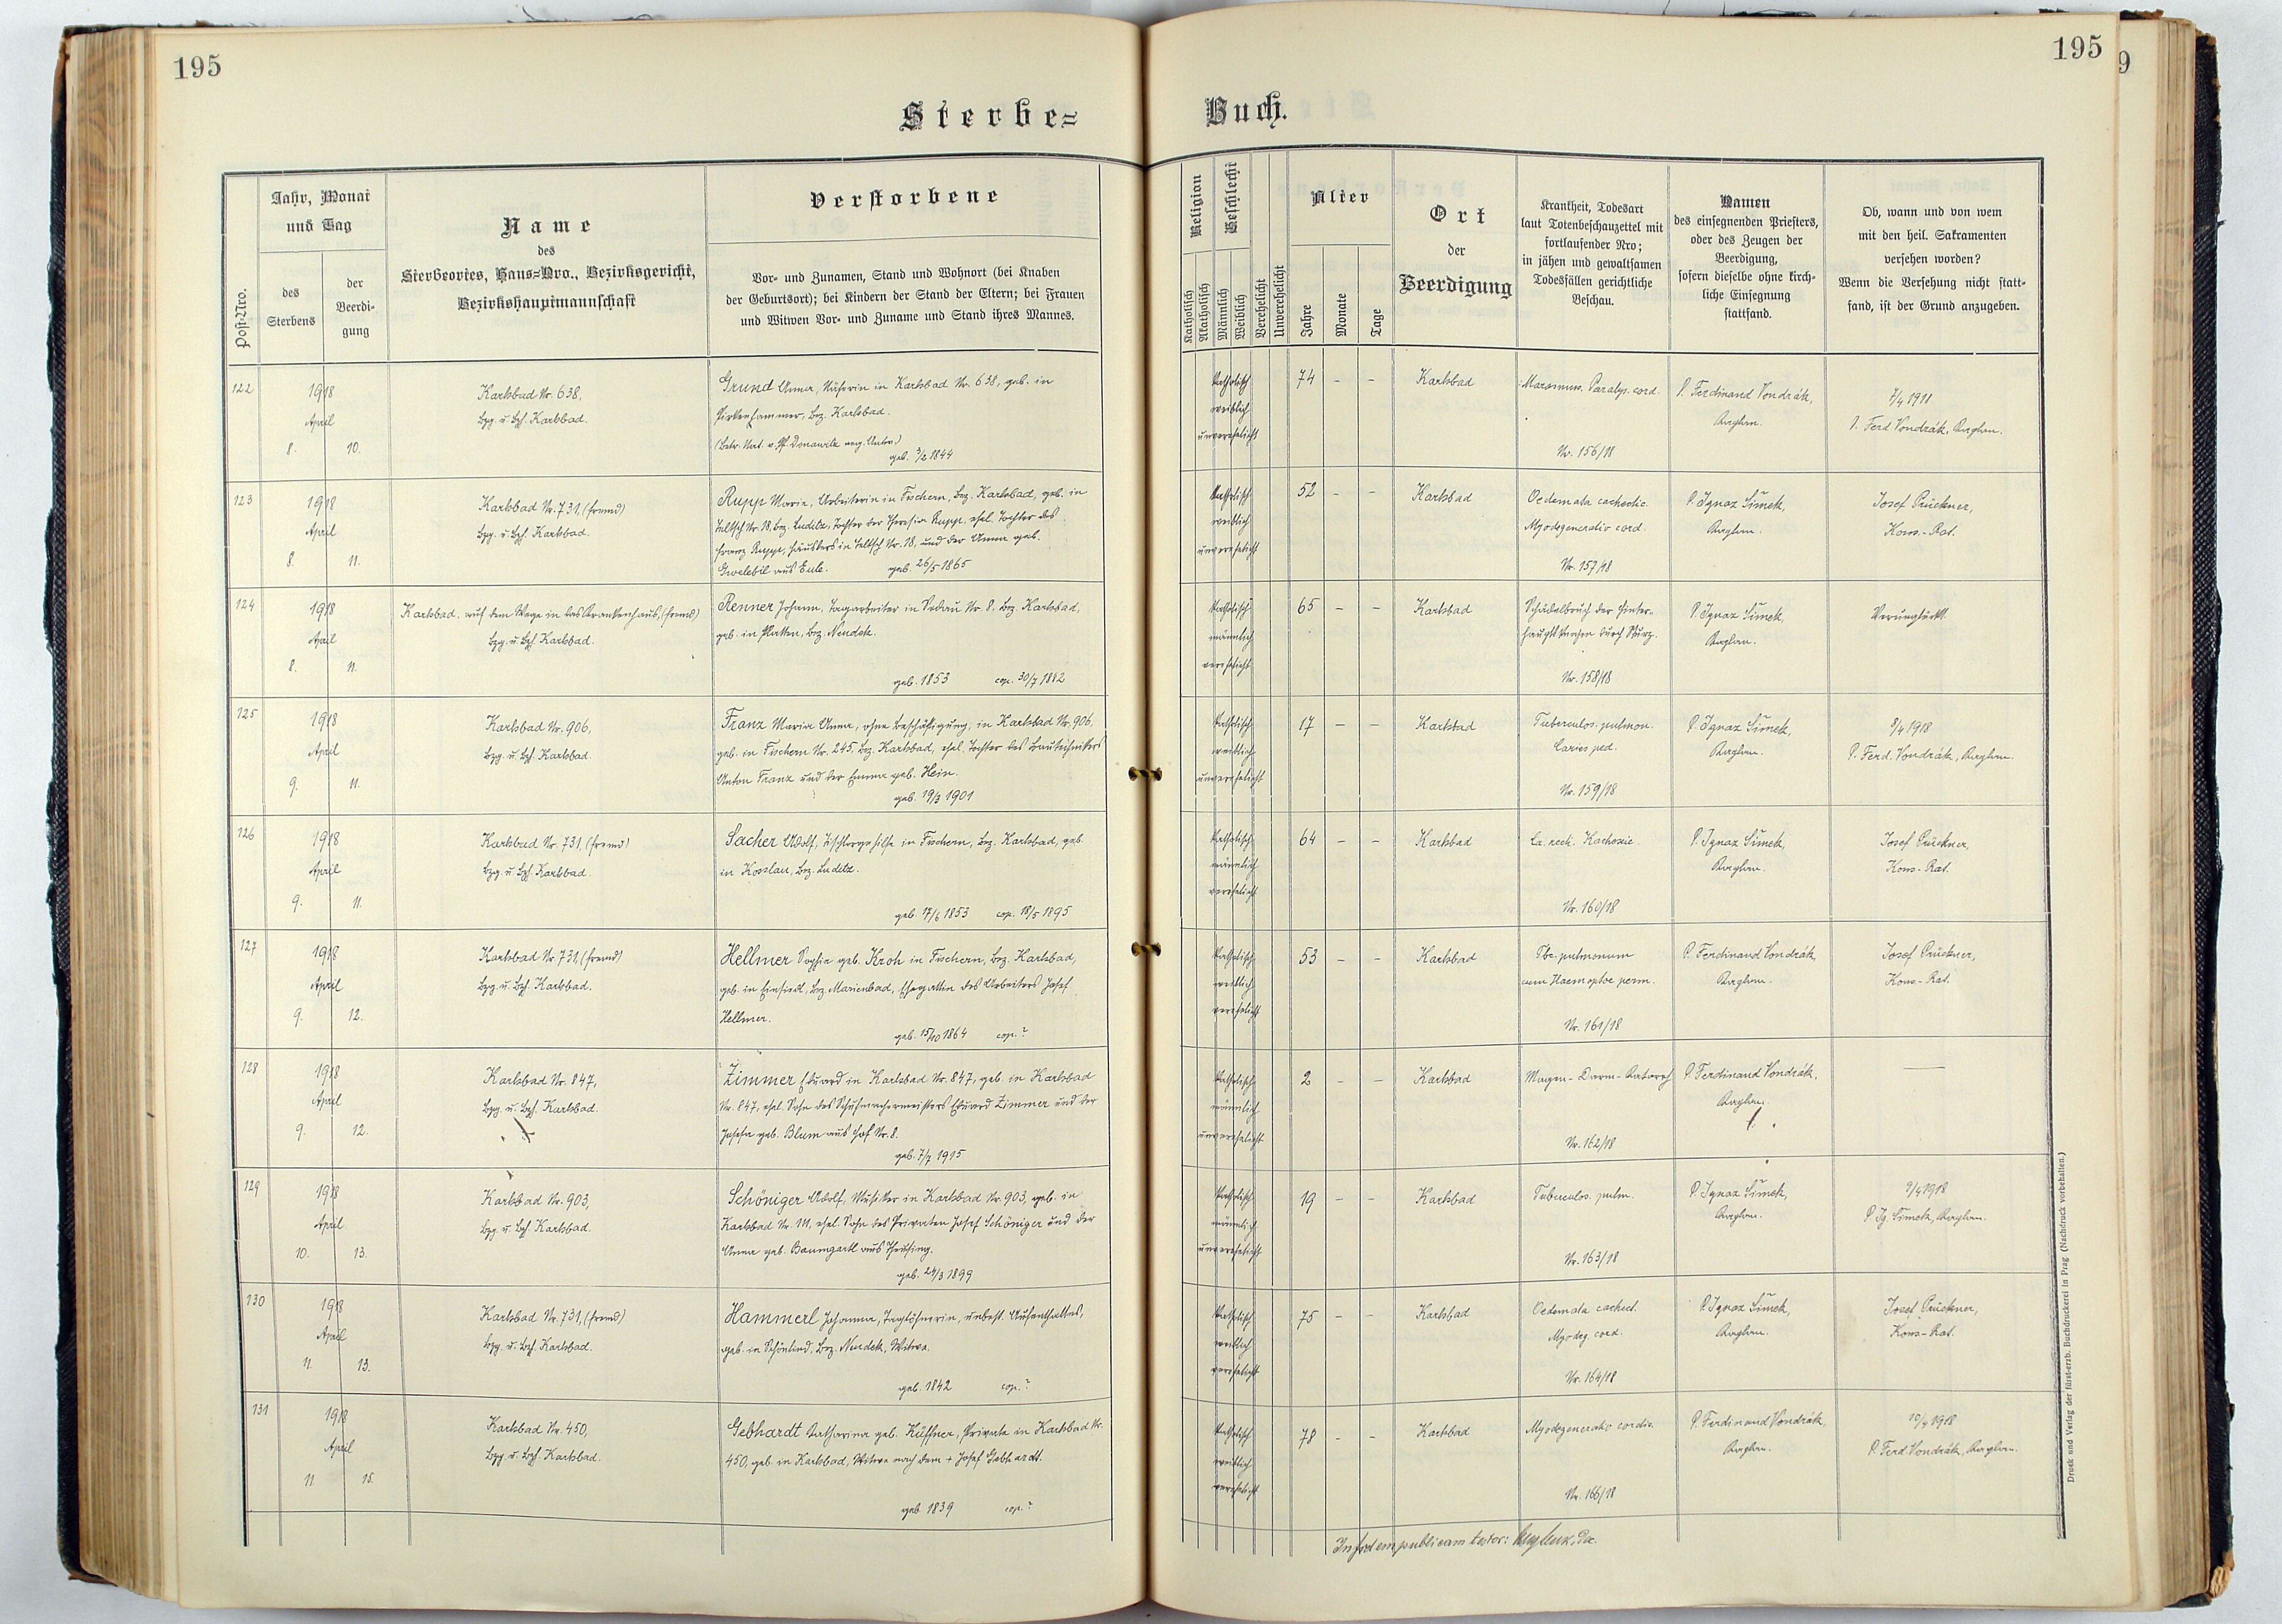 195
195
9
Sterbe=
Buch.
Post-Nro.
Jahr, Monat
und Tag
des
Sterbens
der
Beerdi-
gung
Name
des
Sterbeortes, Haus=Nro., Bezirksgericht,
Bezirkshauptmannschaft
Verstorbene
Vor- und Zunamen, Stand und Wohnort (bei Knaben
der Geburtsort); bei Kindern der Stand der Eltern; bei Frauen
und Witwen Vor- und Zuname und Stand ihres Mannes.
Religion
Katholisch
Akatholisch
Geschlecht
Männlich
Weiblich
Verehelicht
Unverehelicht
Alter
Jahre
Monate
Tage
Ort
der
Beerdigung
Krankheit, Todesart
laut Totenbeschauzettel mit
fortlaufender Nro;
in jähen und gewaltsamen
Todesfällen gerichtliche
Beschau.
Namen
des einsegnenden Priesters,
oder des Zeugen der
Beerdigung,
sofern dieselbe ohne kirch-
liche Einsegnung
stattfand.
Ob, wann und von wem
mit den heil. Sakramenten
versehen worden?
Wenn die Versehung nicht statt-
fand, ist der Grund anzugeben.
122
1918
April
8. 10.
Karlsbad Nr. 638,
Bzg. u. Bzh. Karlsbad.
Grund Anna, Näherin in Karlsbad Nr. 638, geb. in
Pirkenhammer, Bez. Karlsbad.
geb. 3/2 1844
katholisch
weiblich
unverehelicht
74 - -
Karlsbad
Marasmus. Paralys. cord.
Nr. 156/18
P. Ferdinand Vondrák,
Kaplan.
7/4 1918
P. Ferd. Vondrák, Kaplan.
123
1918
April
8. 11.
Karlsbad Nr. 731, (fremd)
Bzg. u. Bzh. Karlsbad.
Rupp Maria, Arbeiterin in Fischern, Bez. Karlsbad, geb. in
Nr. 18, Bez. Luditz, Tochter der Theresia Rupp, ehel. Tochter des
Franz Rupp, Häuslers in Nr. 18, und der Anna geb.
aus Eule. geb. 26/5 1865
katholisch
weiblich
unverehelicht
52 - -
Karlsbad
Oedemata cachectic.
Myodegeneratio cord.
Nr. 157/18
P. Ignaz Šimek,
Kaplan.
Josef Prückner,
Kons.-Rat.
124
1918
April
8. 11.
Karlsbad, auf dem Wege in das Krankenhaus, (fremd)
Bzg. u. Bzh. Karlsbad.
Renner Johann, Tagarbeiter in Sodau Nr. 8. Bez. Karlsbad,
geb. in Platten, Bez. Neudek.
geb. 1853 cop. 30/7 1882
katholisch
männlich
verehelicht
65 - -
Karlsbad
Schädelbruch der Hinter-
hauptknochen durch Sturz.
Nr. 158/18
P. Ignaz Šimek,
Kaplan.
Verunglückt.
125
1918
April
9. 11.
Karlsbad Nr. 906,
Bzg. u. Bzh. Karlsbad.
Franz Maria Anna, ohne Beschäftigung, in Karlsbad Nr. 906,
geb. in Fischern Nr. 245, Bez. Karlsbad, ehel. Tochter des Bautechnikers
Anton Franz und der Emma geb. Hein.
geb. 19/3 1901
katholisch
weiblich
unverehelicht
17 - -
Karlsbad
Tuberculos. pulmon.
Caries ped.
Nr. 159/18
P. Ignaz Šimek,
Kaplan.
8/4 1918
P. Ferd. Vondrák, Kaplan.
126
1918
April
9. 11.
Karlsbad Nr. 731, (fremd)
Bzg. u. Bzh. Karlsbad.
Sacher Adolf, Tischlergehilfe in Fischern, Bez. Karlsbad, geb.
in Kosslau, Bez. Luditz.
geb. 17/6 1853 cop. 18/5 1895
katholisch
männlich
verehelicht
64 - -
Karlsbad
Ca. recti. Kachexie.
Nr. 160/18
P. Ignaz Šimek,
Kaplan.
Josef Prückner,
Kons.-Rat.
127
1918
April
9. 12.
Karlsbad Nr. 731, (fremd)
Bzg. u. Bzh. Karlsbad.
Hellmer Sophie geb. Kroh in Fischern, Bez. Karlsbad,
geb. in Einsiedl, Bez. Marienbad, Ehegattin des Arbeiters Josef
Hellmer.
geb. 15/10 1864 cop. ?
katholisch
weiblich
verehelicht
53 - -
Karlsbad
Tbc. pulmonum
cum Haemoptoe perm.
Nr. 161/18
P. Ferdinand Vondrák,
Kaplan.
Josef Prückner,
Kons.-Rat.
128
1918
April
9. 12.
Karlsbad Nr. 847,
Bzg. u. Bzh. Karlsbad.
Zimmer Eduard in Karlsbad Nr. 847, geb. in Karlsbad
Nr. 847, ehel. Sohn des Schuhmachermeisters Eduard Zimmer und der
Josefa geb. Blum aus Hof Nr. 8.
geb. 7/7 1915
katholisch
männlich
unverehelicht
2 - -
Karlsbad
Magen-Darm-Katarrh
Nr. 162/18
P. Ferdinand Vondrák,
Kaplan.
129
1918
April
10. 13.
Karlsbad Nr. 903,
Bzg. u. Bzh. Karlsbad.
Schöniger Adolf, Musiker in Karlsbad Nr. 903, geb. in
Karlsbad Nr. 111, ehel. Sohn des Privaten Josef Schöniger und der
Anna geb. Baumgartl aus Theusing.
geb. 24/3 1899
katholisch
männlich
unverehelicht
19 - -
Karlsbad
Tuberculos. pulm.
Nr. 163/18
P. Ignaz Šimek,
Kaplan.
9/4 1918
P. Ig. Šimek, Kaplan.
130
1918
April
11. 13.
Karlsbad Nr. 731, (fremd)
Bzg. u. Bzh. Karlsbad.
Hammerl Johanna, Taglöhnerin, unbest. Aufenthaltes,
geb. in Schönlind, Bez. Neudek, Witwe.
geb. 1842 cop. ?
katholisch
weiblich
verehelicht
75 - -
Karlsbad
Oedemata cachect.
Myodeg. cord.
Nr. 164/18
P. Ignaz Šimek,
Kaplan.
Josef Prückner,
Kons-Rat.
131
1918
April
11. 15.
Karlsbad Nr. 450,
Bzg. u. Bzh. Karlsbad.
Gebhardt Katharina geb. Küffner, Private in Karlsbad Nr.
450, geb. in Karlsbad, Witwe nach dem + Josef Gebhardt.
geb. 1839 cop. ?
katholisch
weiblich
verehelicht
78 - -
Karlsbad
Myodegeneratio cordis.
Nr. 166/18
P. Ferdinand Vondrák,
Kaplan.
10/4 1918
P. Ferd. Vondrák, Kaplan.
In fidem publicam testor:
Druck und Verlag der fürsterzb. Buchdruckerei in Prag (Nachdruck vorbehalten.)